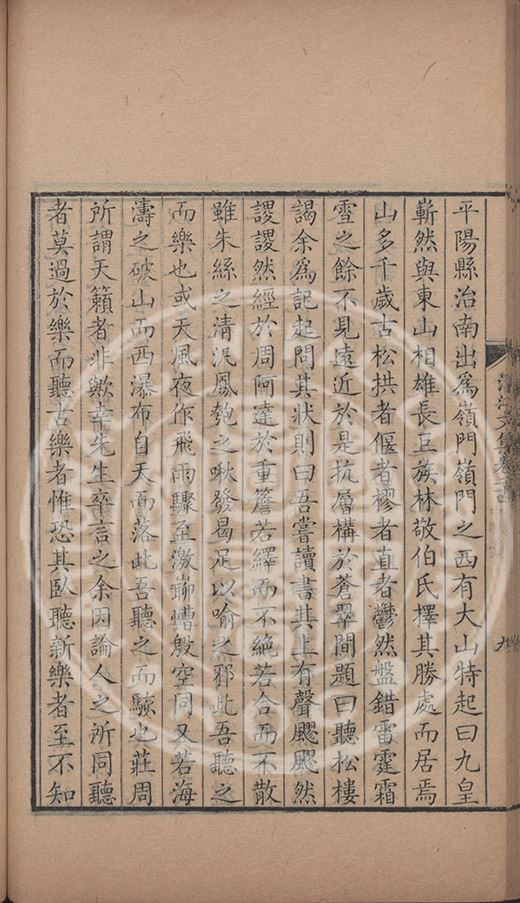 平陽縣治南出爲嶺門嶺門之西有大山特起曰九皇
嶄然與東山相雄長巨族林敬伯氏擇其勝處而居焉
山多千歲古松拱者偃者樛者直者鬱然盤錯雷霆霜
雪之餘不見遠近於是抗層構於蒼翠間題曰聽松樓
謁余爲記起問其狀則曰吾嘗讀書其上有聲颼颼然
謖謖然經於周阿達於重簷若繹而不絕若合而不散
雖朱絲之清汎鳳匏之啾發曷足以喻之邪此吾聽之
而樂也或天風夜作飛雨驟至激嵛嘈殷空同又若海
濤之破山而西瀑布自天而落此吾聽之而駭也莊周
所謂天籟者非歟幸先生卒言之余因論人之所同聽
者莫過於樂而聽古樂者惟恐其臥聽新樂者至不知
清江文集卷
九